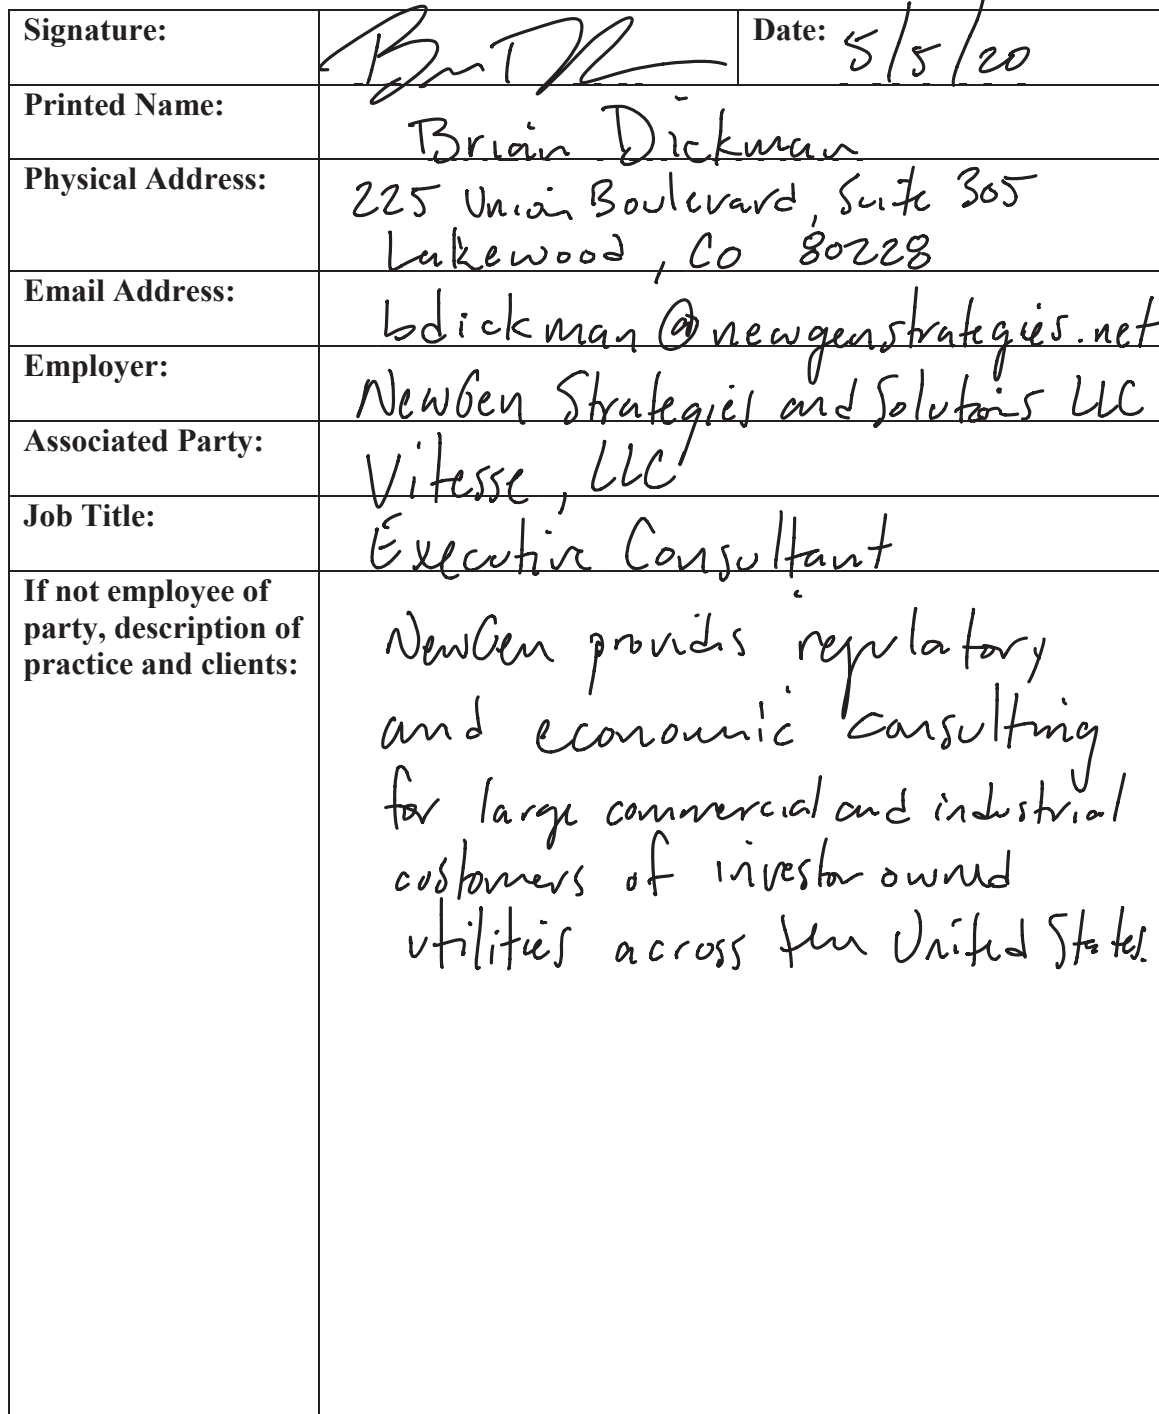 Signature:
Date: 5/5/20
Printed Name: Brian Dickman
Physical Address: 225 Union Boulevard, Suite 305
Lakewood, CO 80228
Email Address: bdickman@newgenstrategies.net
Employer: NewGen Strategies and Solutions LLC
Associated Party: Vitesse, LLC
Job Title: Executive Consultant
If not employee of
party, description of
practice and clients:
NewGen provides regulatory
and economic consulting
for large commercial and industrial
customers of investor owned
utilities across the United States.